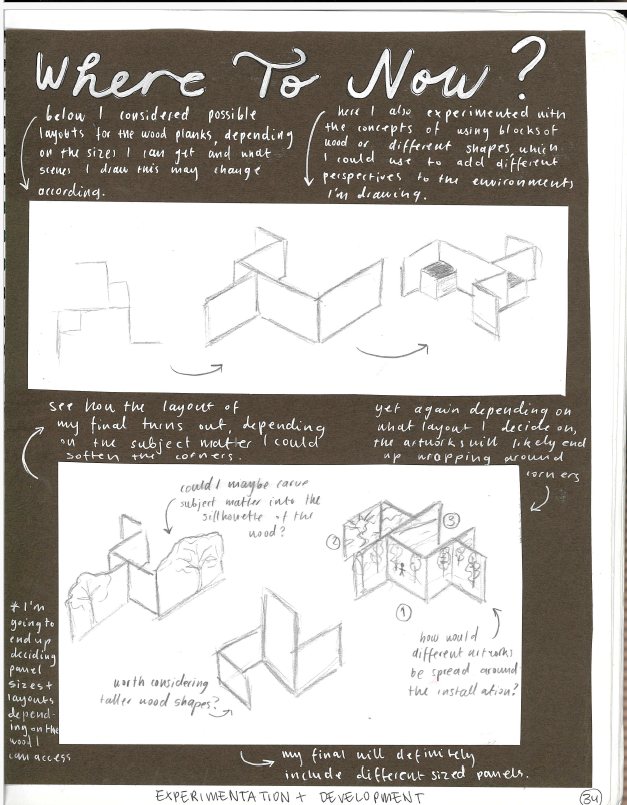 Where To Now?
below I considered possible
layouts for the wood planks, depending
on the sizes I can get and what
scenes I draw this may change
according.
here I also experimented with
the concepts of using blocks of
wood or different shapes, which
I could use to add different
perspectives to the environments
I'm drawing.
see how the layout of
my final turns out, depending
on the subject matter I could
soften the corners.
yet again depending on
what layout I decide on,
the artworks will likely end
up wrapping around
corners
could I maybe carve
subject matter into the
silhouette of the
wood?
② ③
①
how would
different artworks
be spread around
the installation?
worth considering
taller wood shapes?
* I'm
going to
end up
deciding
panel
sizes +
layouts
depend-
ing on the
wood I
can access
my final will definitely
include different sized panels.
EXPERIMENTATION + DEVELOPMENT
34